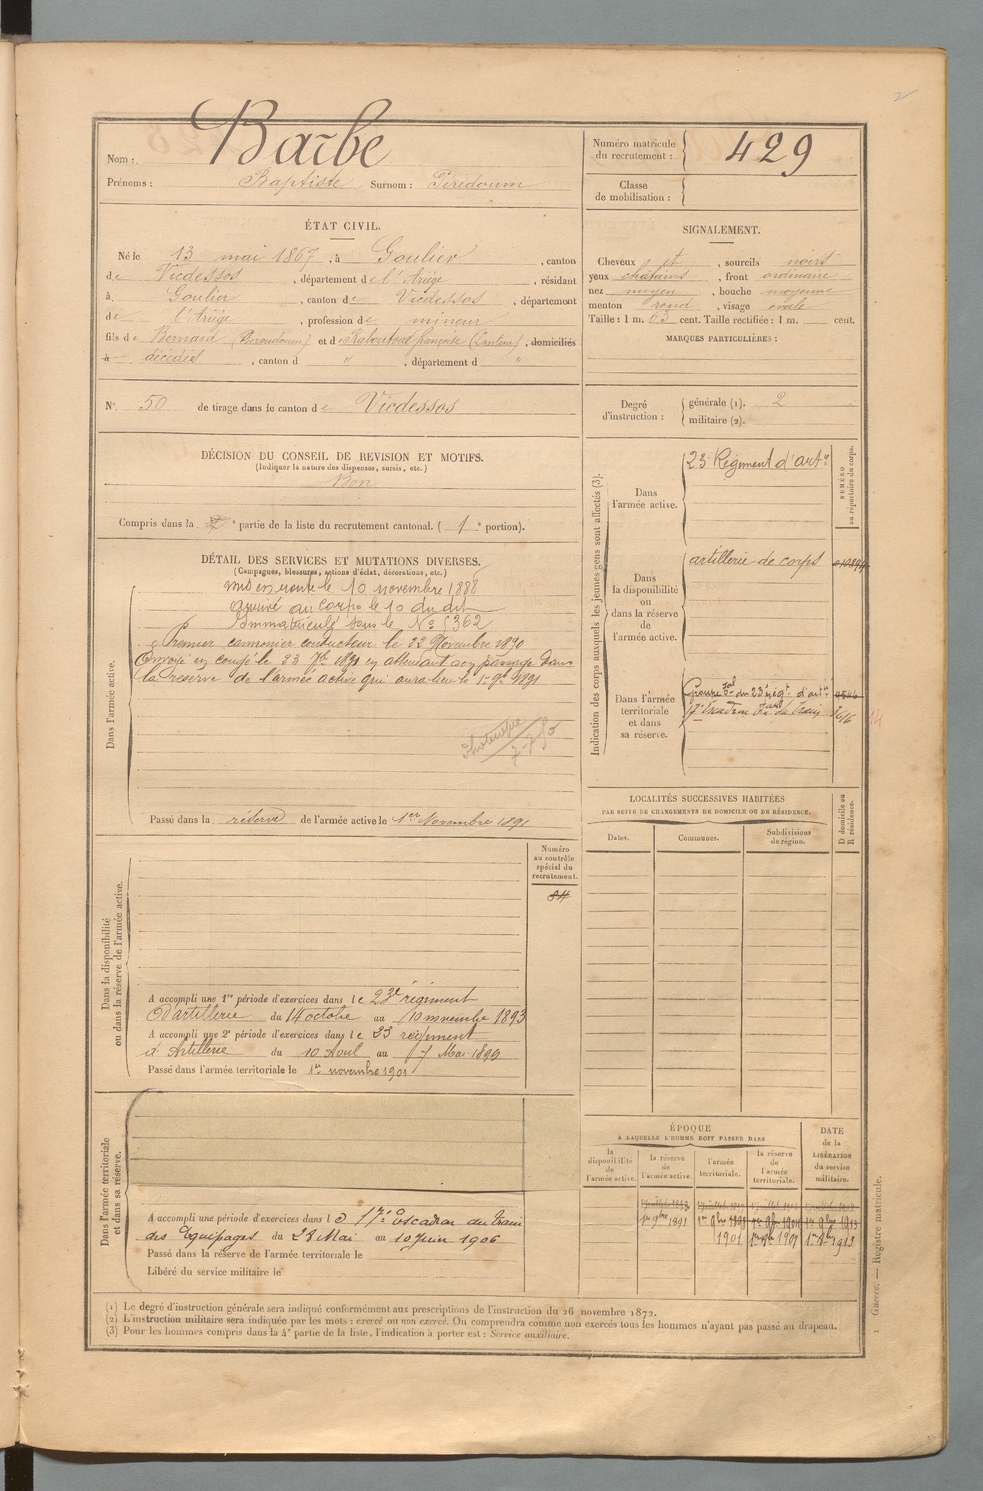 Nom : Barbe
Prénoms : Baptiste Surnom : Péridoum
Numéro matricule
du recrutement : 429
Classe
de mobilisation :
ÉTAT CIVIL.
Né le 13 mai 1867, à Goulier, canton
de Vicdessos, département de l'Ariège, résidant
à Goulier, canton de Vicdessos, département
de l'Ariège, profession de mineur
fils de Bernard et de françoise, domiciliés
à décédés, canton d " , département d "
N° 50 de tirage dans le canton de Vicdessos
SIGNALEMENT.
Cheveux et, sourcils noirs
yeux chatains, front ordinaire
nez moyen, bouche moyenne
menton rond, visage ovale
Taille : 1 m. 63 cent. Taille rectifiée : 1 m. cent.
MARQUES PARTICULIÈRES :
Degré
d'instruction :
générale (1). 2
militaire (2).
DÉCISION DU CONSEIL DE REVISION ET MOTIFS.
(Indiquer la nature des dispenses, sursis, etc.)
Bon
Compris dans la e partie de la liste du recrutement cantonal. ( 1e portion).
DÉTAIL DES SERVICES ET MUTATIONS DIVERSES.
(Campagnes, blessures, actions d'éclat, décorations, etc.)
Dans l'armée active.
Mis en route le 10 novembre 1888
arrivé au corps le 10 du dit
Immatriculé sous le No 5362
Premier cannonier conducteur le 22 Novembre 1890
Envoyé en congé le 23 7bre 1891 en attendant son passage dans
la réserve de l'armée active qui aura lieu le 1er 9bre 1891
Passé dans la réserve de l'armée active le 1er Novembre 1891
Indication des corps auxquels les jeunes gens sont affectés (3).
NUMÉRO
au répertoire du corps.
Dans
l'armée active.
23e Régiment d'artie
Dans
la disponibilité
ou
dans la réserve
de
l'armée active.
artillerie de corps
Dans l'armée
territoriale
et dans
sa réserve.
Groupe tal du 23e régt d'artie
17e Escadron tal du train
LOCALITÉS SUCCESSIVES HABITÉES
PAR SUITE DE CHANGEMENTS DE DOMICILE OU DE RÉSIDENCE.
D domicile ou
R résidence.
Dates.
Communes.
Subdivisions
de région.
Dans la disponibilité
ou dans la réserve de l'armée active.
Numéro
au contrôle
spécial du
recrutement.
84
A accompli une 1re période d'exercices dans le 23e régiment
D'artillerie du 14 octobre au 10 novembre 1893
A accompli une 2e période d'exercices dans le 23 régiment
d'Artillerie du 10 Avril au 7 Mai 1899
Passé dans l'armée territoriale le 1er novembre 1901
Dans l'armée territoriale
et dans sa réserve.
A accompli une période d'exercices dans le 17e Escadron du train
des Equipages du 28 Mai au 10 Juin 1906
Passé dans la réserve de l'armée territoriale le
Libéré du service militaire le
ÉPOQUE
A LAQUELLE L'HOMME DOIT PASSER DANS
la
disponibilité
de
l'armée active.
la réserve
de
l'armée active.
l'armée
territoriale.
la réserve
de
l'armée
territoriale.
DATE
de la
LIBÉRATION
du service
militaire.
1er 9bre 1891
1901
1er 9bre 1907
1er 9bre 1913
(1) Le degré d'instruction générale sera indiqué conformément aux prescriptions de l'instruction du 26 novembre 1872.
(2) L'instruction militaire sera indiquée par les mots : exercé ou non exercé. On comprendra comme non exercés tous les hommes n'ayant pas passé au drapeau.
(3) Pour les hommes compris dans la 4e partie de la liste, l'indication à porter est : Service auxiliaire.
1 Guerre. — Registre matricule.